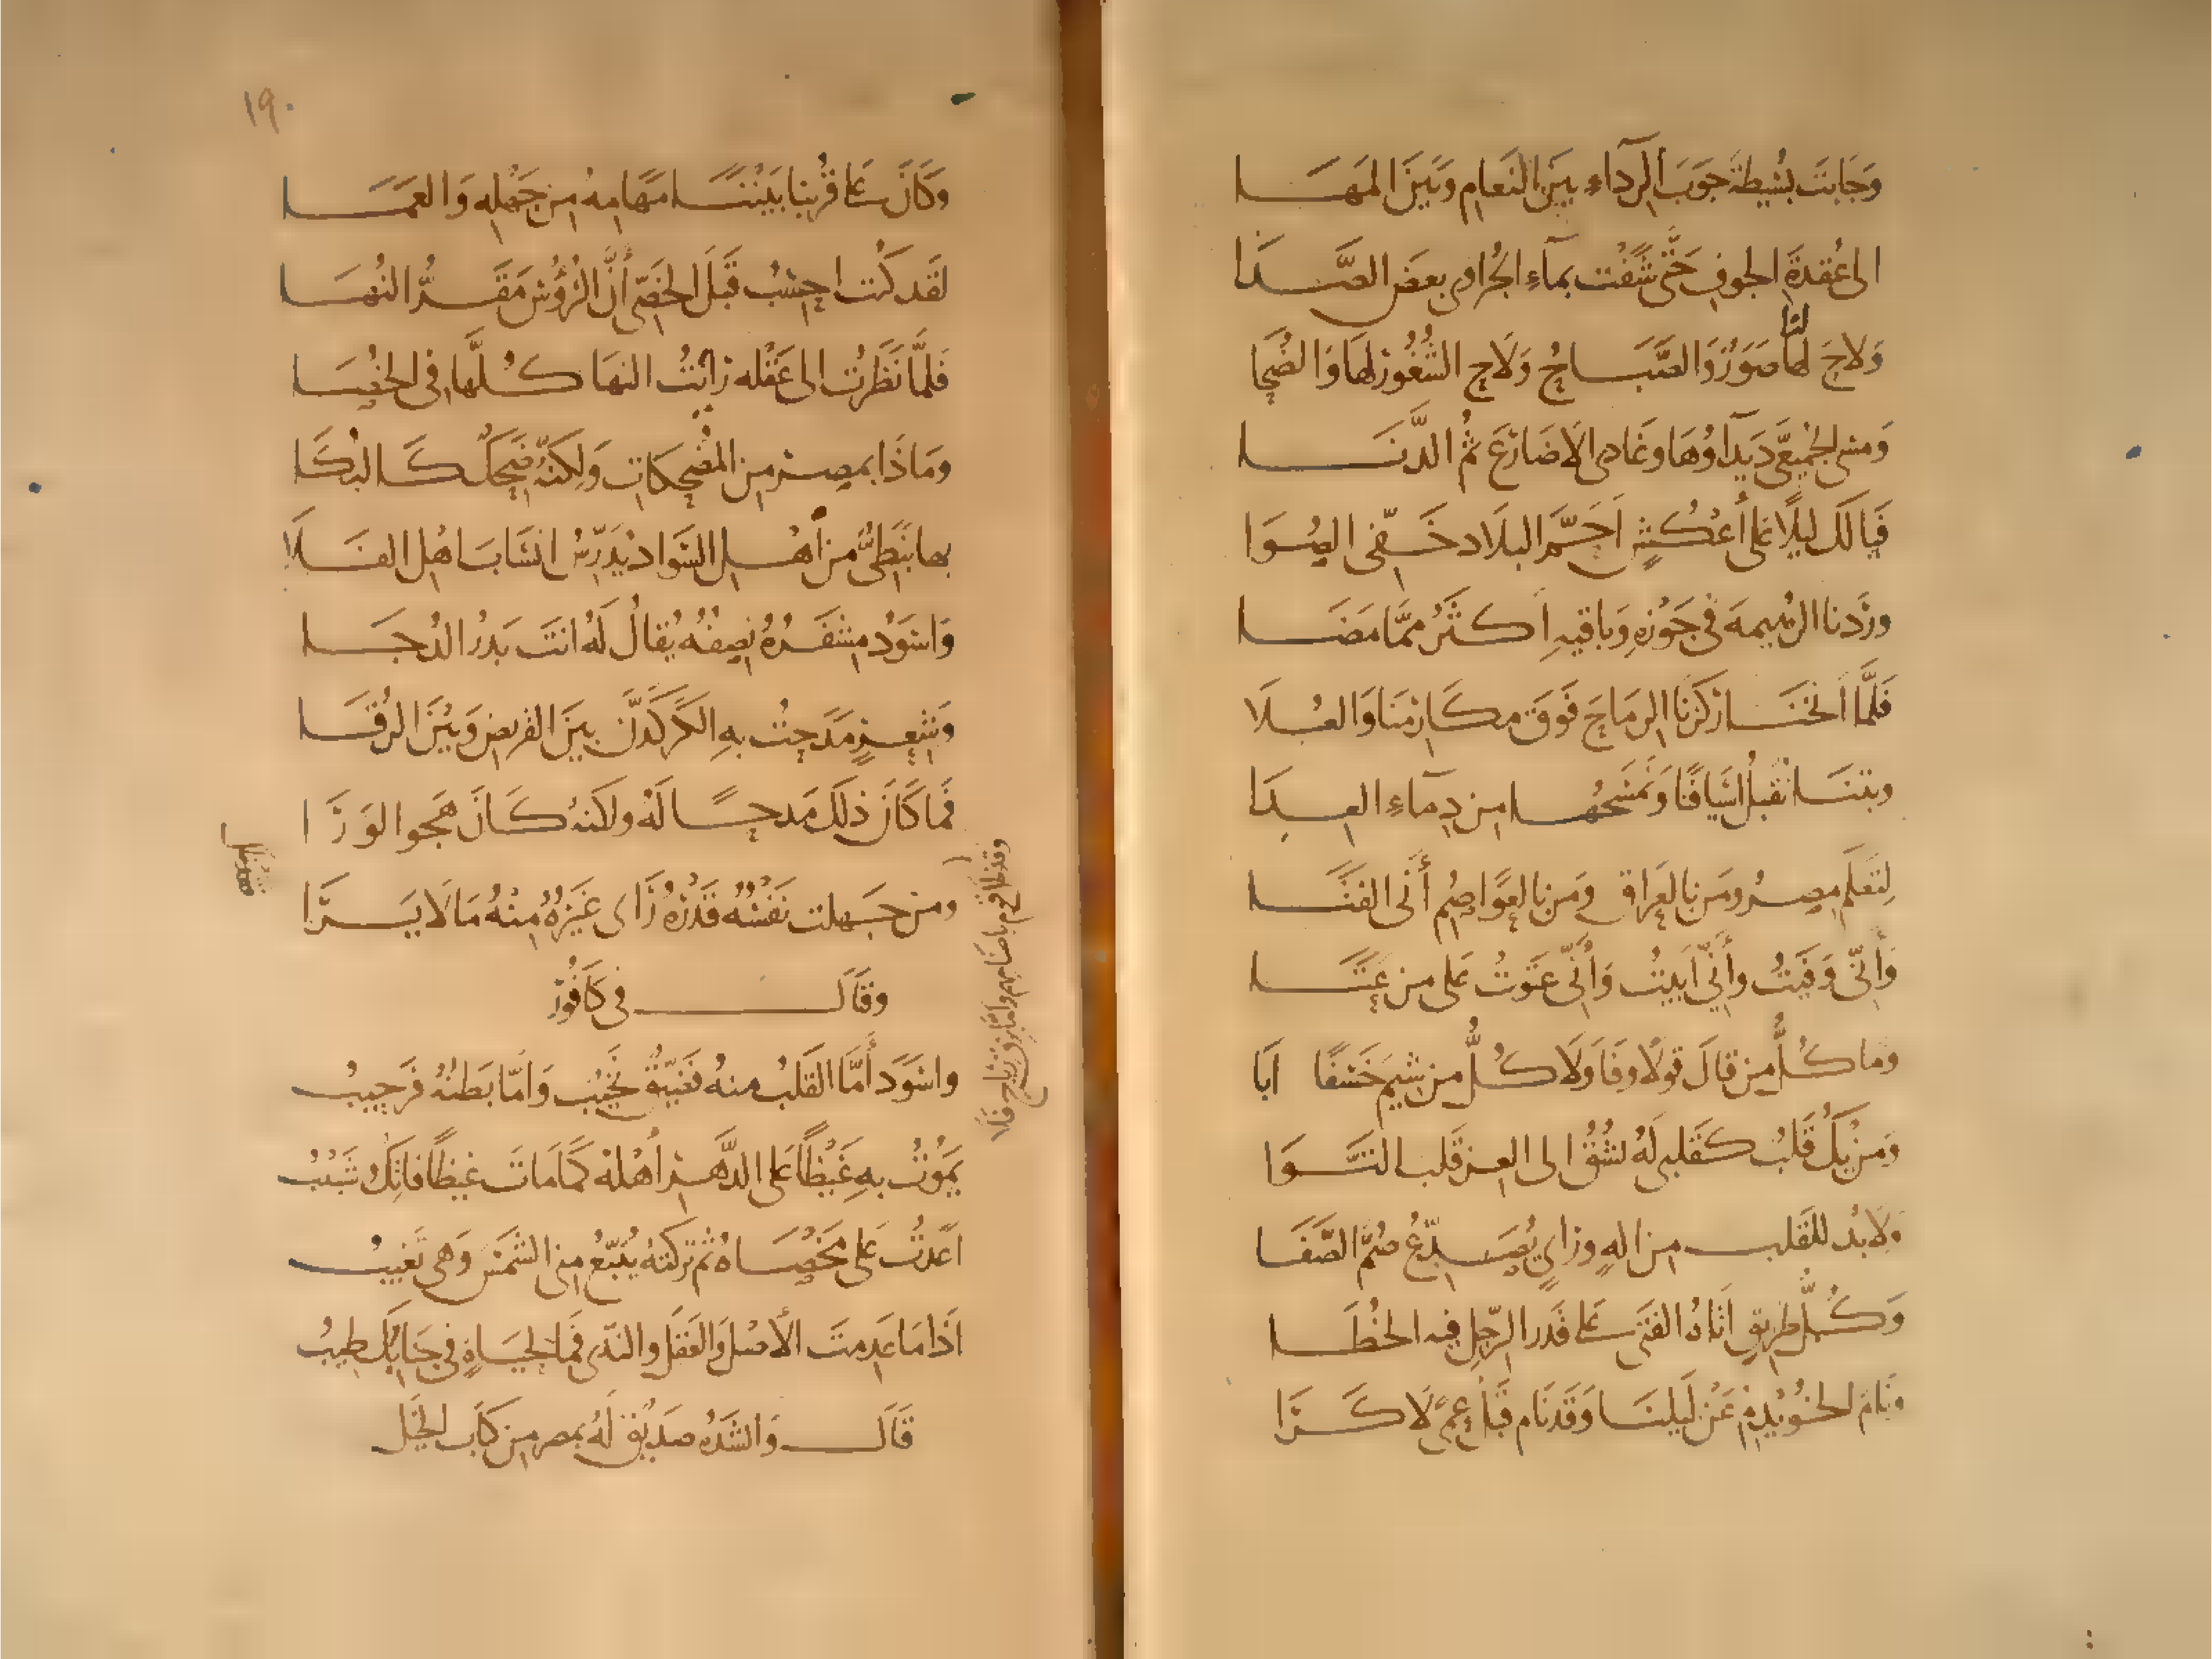 وَجَابَت بُسَيطَةَ جَوبَ الرِّدَآءِ بَينَ النَعامِ وَبَينَ المَهَا
الى عُقدَةِ الجوفِ حَتّى شَفَت بمآءِ الجُراوى بعضَ الصَّدَا
وَلاحَ لها لنا صَوَرٌ وَالصَّبَاحُ وَلَاحَ الشَّغُورُ لهَا وَالضُّحَا
وَمَسّى الجُمَيعىَّ دَيدَآؤُهَا وغَادى الاَضَارعَ ثُمَّ الدَّنَا
فَيَا لَكَ لَيلًا عَلى أَعكُشٍ اَحَمَّ البلَاد خَفِىَّ الصُوَا
ورَدنا الرُهيمهَ فى جَوزِهِ وَبَاقيهِ اَكثَرُ ممَّا مَضَا
فَلَمَّا اَنَخنَا رَكَزنَا الرمَاحَ فَوقَ مكَارِمنَا وَالعُلَا
وبتنَا نُقبِلُ اَسيَافَنَا وَنَمسَحُهَا مِن دِمآءِ العِدَا
لِتَعلَمَ مِصرُ ومَن بالعِرَاق ومَن بالعوَاصِمِ أَنى الفَتَا
وَأَنّى وَفَيتُ وأَنّى اَبَيتُ وَأَنّى عَتَوتُ عَلى مَن عَتَا
وما كُلُّ مَن قالَ قولًا وَفَا وَلَا كُلُّ مَن سِيمَ خَسفًا اَبَا
وَمَن يَكُ قَلبٌ كقَلبى لَهُ يَشُقُّ الى العِزِ قَلبَ التَّوَا
ولا بُد للقَلب من الهٍ ورَاىٍ يُصَدِّعُ صُمَّ الصَّفَا
وَكُلُّ طَرِيقٍ اَتَاهُ الفَتَى عَلى قَدَر الرِّجلِ فيه الخُطَا
ونَامَ الخُوَيدِمُ عَن لَيلنَا وَقَد نَام قَبلُ عمًى لَا كَرَا
١٩٠
وَكَانَ عَلى قُربنا بَينَنَا مَهَامِهُ مِن جَهلِهِ وَالعَمَا
لقَد كُنت احسِبُ قَبلَ الخَصِىّ أَنَّ الرُؤُسَ مَقَرُّ النُهَا
فَلمَّا نَظَرتُ الى عَقله رَاَيتُ النهَا كُلَّهَا فى الخُصَا
ومَاذَا بمصر مِن المُضحِكَاتِ وَلكِنَّهُ ضَحِكٌ كَالبُكَا
بها نَبَطِىٌّ من أَهل السَّوَاد يُدَرِّسُ انسَابَ اهل الفَلَا
وَاسوَدُ مِشفَرُهُ نِصفُهُ يُقالُ لَهُ انتَ بَدرُ الدُجَا
وَشِعرٍ مَدَحتُ بهِ الكَركَدَنَّ بينَ القَريضِ وَبَينَ الرُقَا
فَما كَانَ ذلكَ مَدحًا لَهُ ولكنهُ كَانَ هَجوَ الوَرَا
وقد ضلّ قوم باصنامهم وامّا بزقّ رياح فلا
ومن جَهلت نَفسُهُ قَدرَهُ رَاى غَيرُهُ مِنهُ مَا لَا يَرَا
وقَالَ فى كَافُورٍ
واسوَدَ أَمَّا القَلبُ منهُ فَضَيّقٌ نَخيبٌ وَأمّا بَطنُهُ فرَحيبُ
يَمُوتُ بهِ غَيظًا عَلى الدَّهر اَهلهُ كَما مَاتَ غيظًا فاتِكٌ وشَبيبُ
اَعَدتُ عَلى مَخصَاهُ ثم تركتهُ يُتَبِّعُ مِنى الشَّمسَ وَهى تَغيبُ
اذَا مَا عَدِمتَ الأَصلَ وَالعَقلَ والنَدى فَما لحَيَاةٍ فى جَنَابكَ طِيبُ
قَالَ وَانشَدَهُ صَديقٌ لَهُ بمصر مِن كتَاب الخَيل